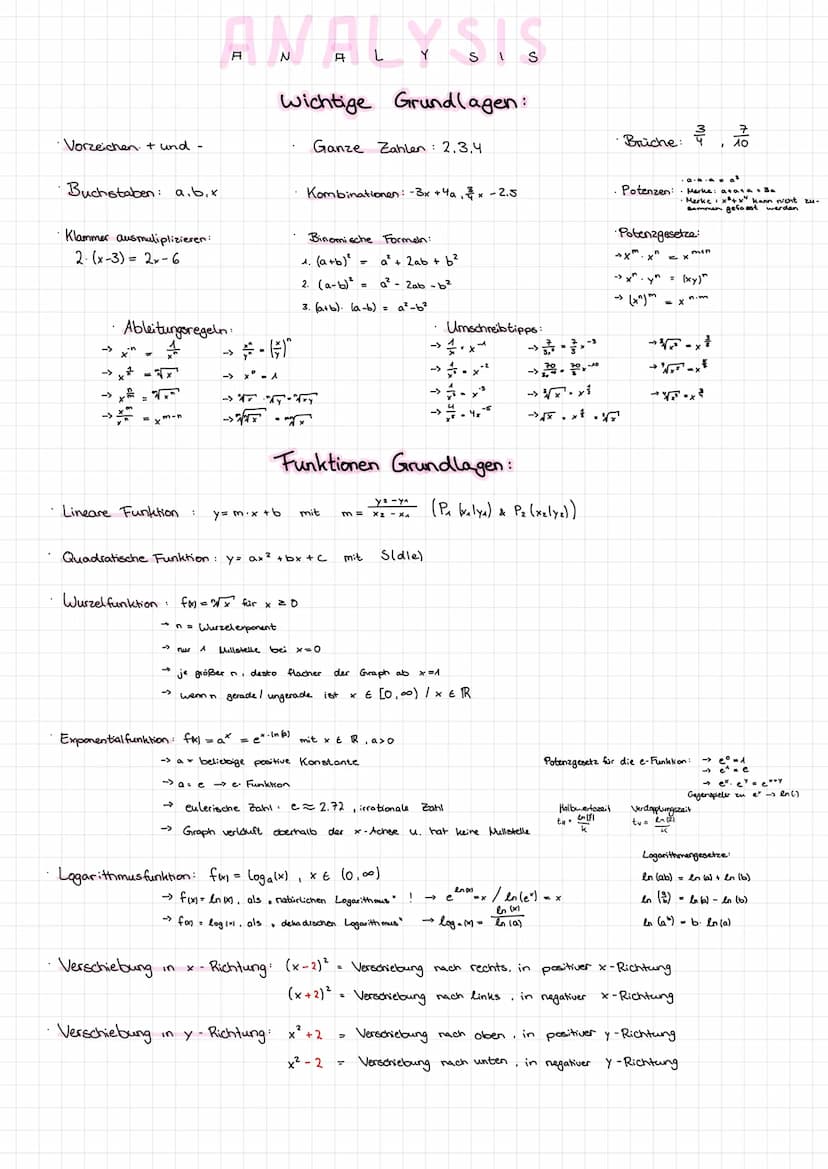 ANALYSIS
A N A L Y S I S
Wichtige Grundlagen:
· Vorzeichen + und -
· Ganze Zahlen : 2,3,4
· Brüche: 3/4 , 7/10
· Buchstaben: a,b,x
· Kombinationen: -3x + 4a , 3/4 x - 2.5
· Potenzen: · a·a·a = a³
· Merke: a+a+a = 3a
· Merke: x³+x⁴ kann nicht zu-
sammen gefasst werden
· Klammer ausmuliplizieren:
2·(x-3) = 2x-6
· Binomische Formeln:
1. (a+b)² = a² + 2ab + b²
2. (a-b)² = a² - 2ab - b²
3. (a+b)·(a-b) = a²-b²
· Potenzgesetze:
→ x^m · x^n = x^(m+n)
→ x^n · y^n = (xy)^n
→ (x^n)^m = x^(n·m)
· Ableitungsregeln:
→ x^-n = 1/x^n
→ x^n/y^n = (x/y)^n
→ x^(1/n) = ⁿ√x
→ x⁰ = 1
→ x^m/x^n = x^(m-n)
· Umschreibtipps:
→ 1/x = x^-1
→ 1/x² = x^-2
→ 1/x³ = x^-3
→ 4/x⁵ = 4x^-5
Funktionen Grundlagen:
· Lineare Funktion : y = m·x + b mit m = (y₂-y₁)/(x₂-x₁) (P₁(x₁|y₁) & P₂(x₂|y₂))
· Quadratische Funktion : y = ax² + bx + c mit S(d|e)
· Wurzelfunktion : f(x) = ⁿ√x für x ≥ 0
→ n = Wurzelexponent
→ nur 1 Nullstelle bei x=0
→ je größer n, desto flacher der Graph ab x=1
→ wenn n gerade/ungerade ist x ∈ [0,∞) / x ∈ ℝ
· Exponentialfunktion: f(x) = a^x = e^(x·ln(a)) mit x ∈ ℝ, a>0
→ a = beliebige positive Konstante
→ a = e → e-Funktion
→ eulerische Zahl: e ≈ 2.72, irrationale Zahl
→ Graph verläuft oberhalb der x-Achse u. hat keine Nullstelle
Potenzgesetz für die e-Funktion: → e⁰ = 1
→ e¹ = e
→ e^x · e^y = e^(x+y)
Gegenspieler zu e^x → ln(·)
Halbwertszeit
Verdopplungszeit
Logarithmengesetze:
ln (ab) = ln (a) + ln (b)
ln (a/b) = ln (a) - ln (b)
ln (a^b) = b · ln (a)
· Logarithmusfunktion: f(x) = logₐ(x) , x ∈ (0,∞)
→ f(x) = ln(x), als „natürlichen Logarithmus" ! → e^(ln(x)) = x / ln(e^x) = x
→ f(x) = log(x), als „dekadischen Logarithmus" → logₐ(x) = ln(x)/ln(a)
· Verschiebung in x-Richtung: (x-2)² = Verschiebung nach rechts, in positiver x-Richtung
(x+2)² = Verschiebung nach links, in negativer x-Richtung
· Verschiebung in y-Richtung: x² + 2 = Verschiebung nach oben, in positiver y-Richtung
x² - 2 = Verschiebung nach unten, in negativer y-Richtung